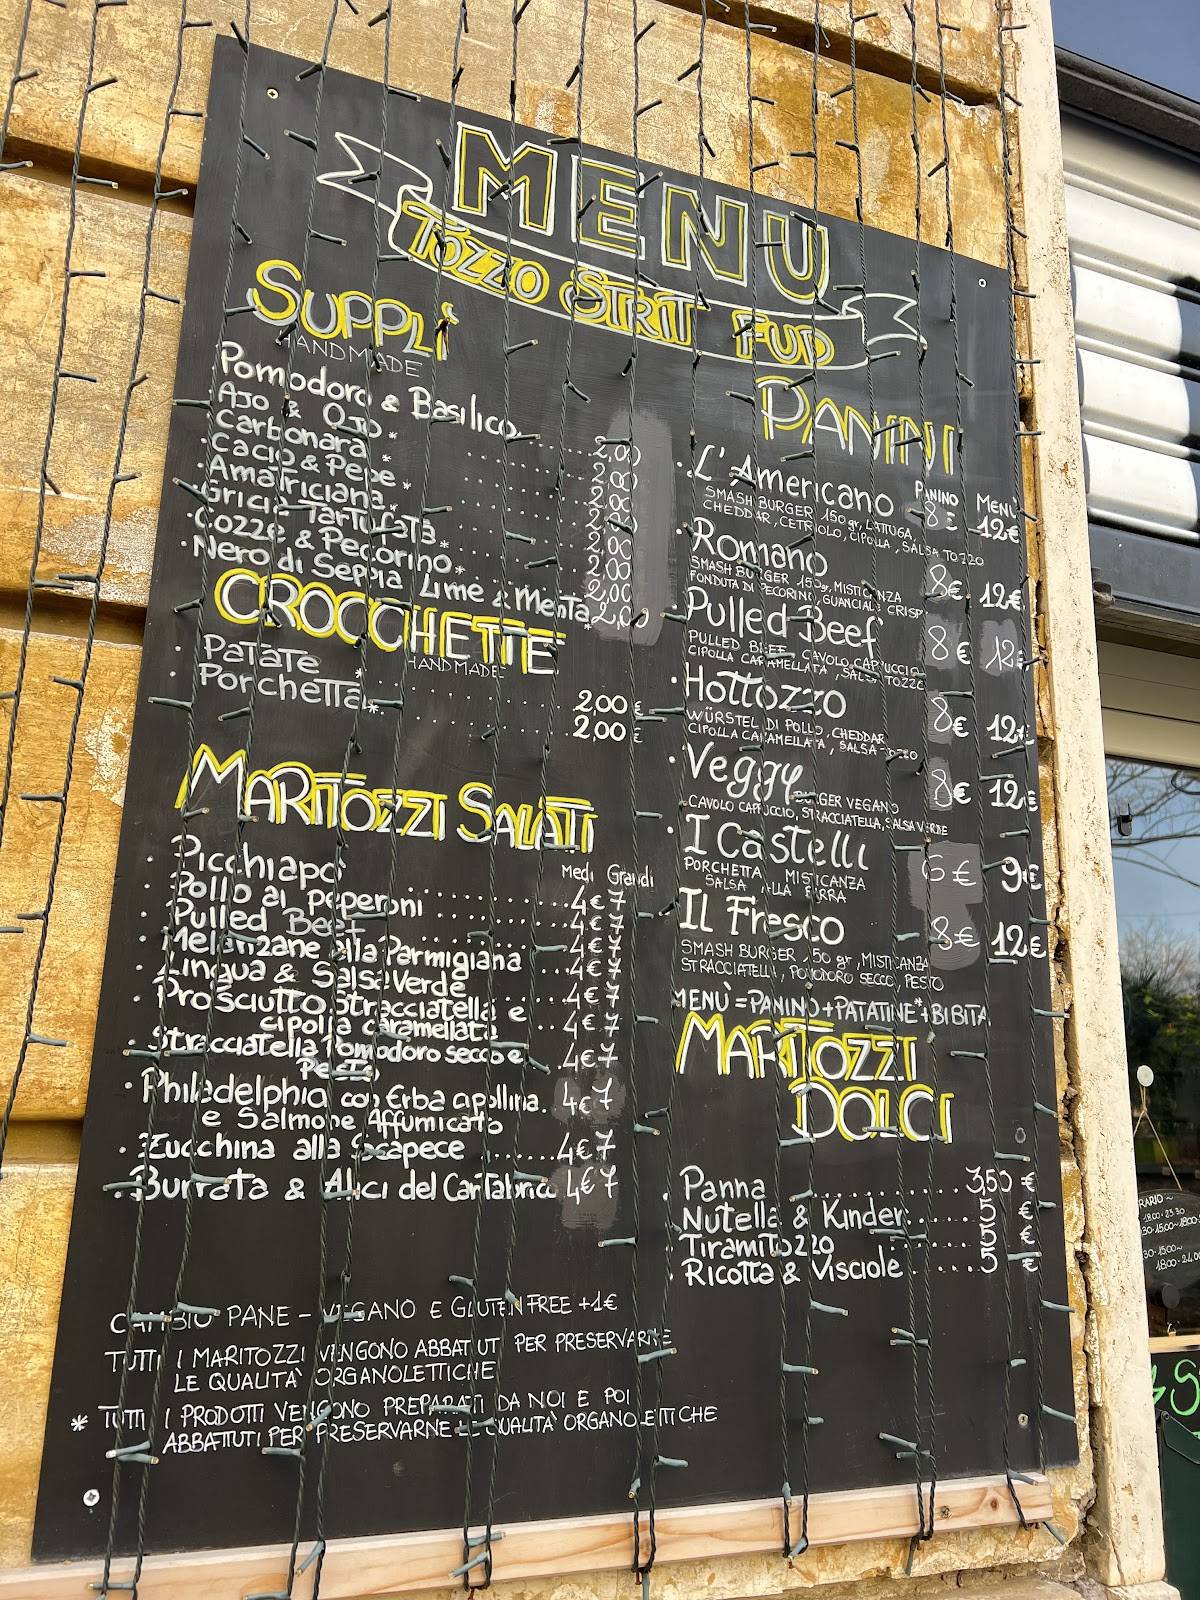 MENU
TOZZO STRIT FUD
SUPPLì
HANDMADE
Pomodoro & Basilico ..... 2,00
· Ajo & Ojo * ..... 2,00
· Carbonara * ..... 2,00
· Cacio & Pepe * ..... 2,00
· Amatriciana * ..... 2,00
· Gricia Tartufata ..... 2,00
· Cozze & Pecorino * ..... 2,00
· Nero di Seppia Lime & Menta * 2,00
CROCCHETTE
HANDMADE
· Patate * ..... 2,00 €
· Porchetta * ..... 2,00 €
MARITOZZI SALATI
Medi Grandi
· Picchiapò ..... 4€ 7
· Pollo ai peperoni ..... 4€ 7
· Pulled Beef ..... 4€ 7
· Melanzane alla Parmigiana ... 4€ 7
· Lingua & Salsa Verde ..... 4€ 7
· Prosciutto Stracciatella e
cipolla caramellata ... 4€ 7
· Stracciatella Pomodoro secco e
Pesto ... 4€ 7
· Philadelphia con Erba cipollina. 4€ 7
e Salmone Affumicato
· Zucchina alla Scapece ..... 4€ 7
· Burrata & Alici del Cantabrico 4€ 7
CAMBIO PANE - VEGANO E GLUTEN FREE +1€
TUTTI I MARITOZZI VENGONO ABBATTUTI PER PRESERVARNE
LE QUALITÀ ORGANOLETTICHE
* TUTTI I PRODOTTI VENGONO PREPARATI DA NOI E POI
ABBATTUTI PER PRESERVARNE LE QUALITÀ ORGANOLETTICHE
PANINI
PANINO MENÙ
· L'Americano 8€ 12€
SMASH BURGER 150 gr, LATTUGA,
CHEDDAR, CETRIOLO, CIPOLLA, SALSA TOZZO
· Romano 8€ 12€
SMASH BURGER 150g, MISTICANZA
FONDUTA DI PECORINO, GUANCIALE CRISPY
· Pulled Beef 8€ 12€
PULLED BEEF, CAVOLO CAPPUCCIO
CIPOLLA CARAMELLATA, SALSA TOZZO
· Hottozzo 8€ 12€
WÜRSTEL DI POLLO, CHEDDAR
CIPOLLA CARAMELLATA, SALSA TOZZO
· Veggy BURGER VEGANO 8€ 12€
CAVOLO CAPPUCCIO, STRACCIATELLA, SALSA VERDE
· I Castelli 6€ 9€
PORCHETTA, MISTICANZA
SALSA ALLA BIRRA
· IL Fresco 8€ 12€
SMASH BURGER 150 gr, MISTICANZA
STRACCIATELLA, POMODORO SECCO, PESTO
MENÙ = PANINO + PATATINE* + BIBITA
MARITOZZI
DOLCI
· Panna ..... 3,50 €
· Nutella & Kinder ..... 5 €
· Tiramitozzo ..... 5 €
· Ricotta & Visciole ..... 5 €